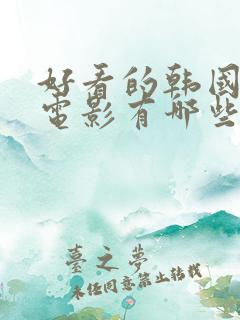 好看的韩國
電影有哪些
臺之夢
未经同意禁止转载